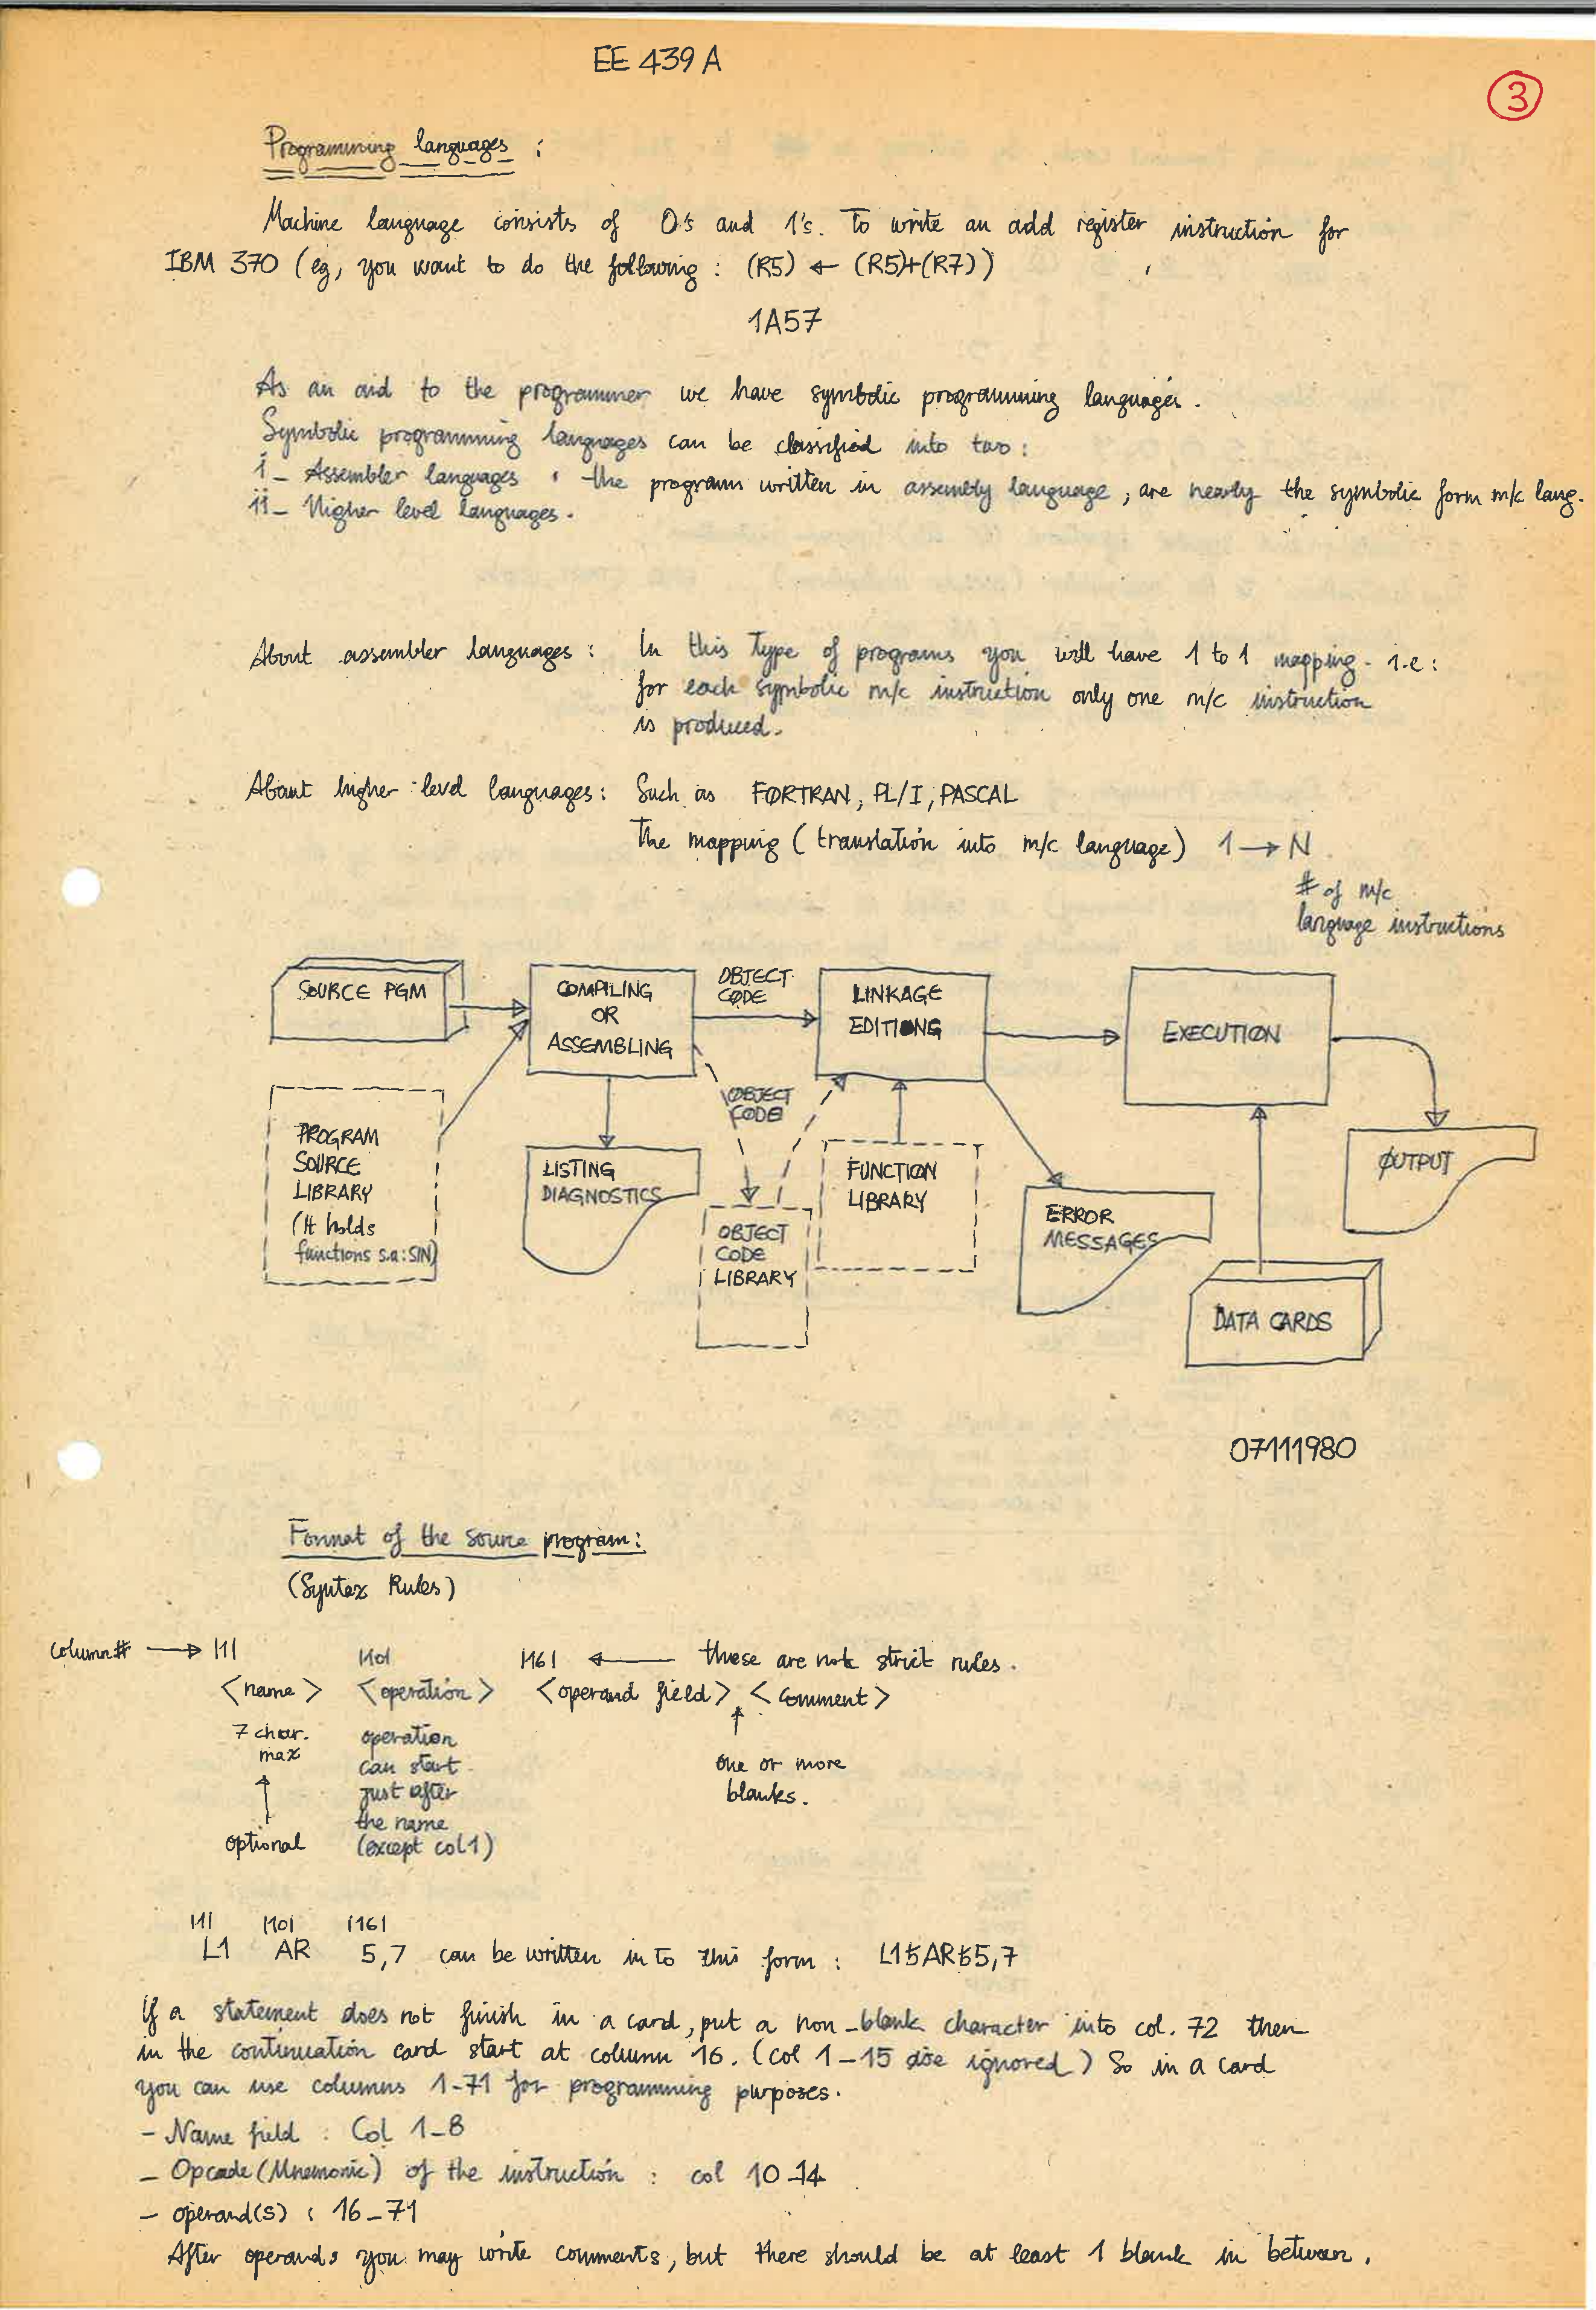 EE 439 A
3
Programming languages :
Machine language consists of 0's and 1's. To write an add register instruction for
IBM 370 (eg, you want to do the following : (R5) ← (R5)+(R7))
1A57
As an aid to the programmer we have symbolic programming languages.
Symbolic programming languages can be classified into two:
i_ Assembler languages : the programs written in assembly language, are nearly the symbolic form m/c lang.
ii_ Higher level languages.
About assembler languages : In this type of programs you will have 1 to 1 mapping. i.e :
for each symbolic m/c instruction only one m/c instruction
is produced.
About higher level languages: Such as FORTRAN, PL/I, PASCAL
The mapping (translation into m/c language) 1 → N
# of m/c
language instructions
SOURCE PGM
COMPILING
OR
ASSEMBLING
OBJECT
CODE
LINKAGE
EDITIONG
EXECUTION
OBJECT
CODE
PROGRAM
SOURCE
LIBRARY
(It holds
functions s.a: SIN)
LISTING
DIAGNOSTICS
OBJECT
CODE
LIBRARY
FUNCTION
LIBRARY
ERROR
MESSAGES
OUTPUT
DATA CARDS
07111980
Format of the source program:
(Syntax Rules)
column# → |1| |10| |16| ← these are not strict rules.
<name> <operation> <operand field> <comment>
7 char.
max
optional
operation
can start
just after
the name
(except col 1)
one or more
blanks.
|1| |10| |16|
L1 AR 5,7 can be written in to this form : L1ƀARƀ5,7
If a statement does not finish in a card, put a non-blank character into col. 72 then
in the continuation card start at column 16. (col 1-15 are ignored) So in a card
you can use columns 1-71 for programming purposes.
- Name field : Col 1-8
- Opcade (Mnemonic) of the instruction : col 10-14
- operand(s) : 16-71
After operands you may write comments, but there should be at least 1 blank in between.